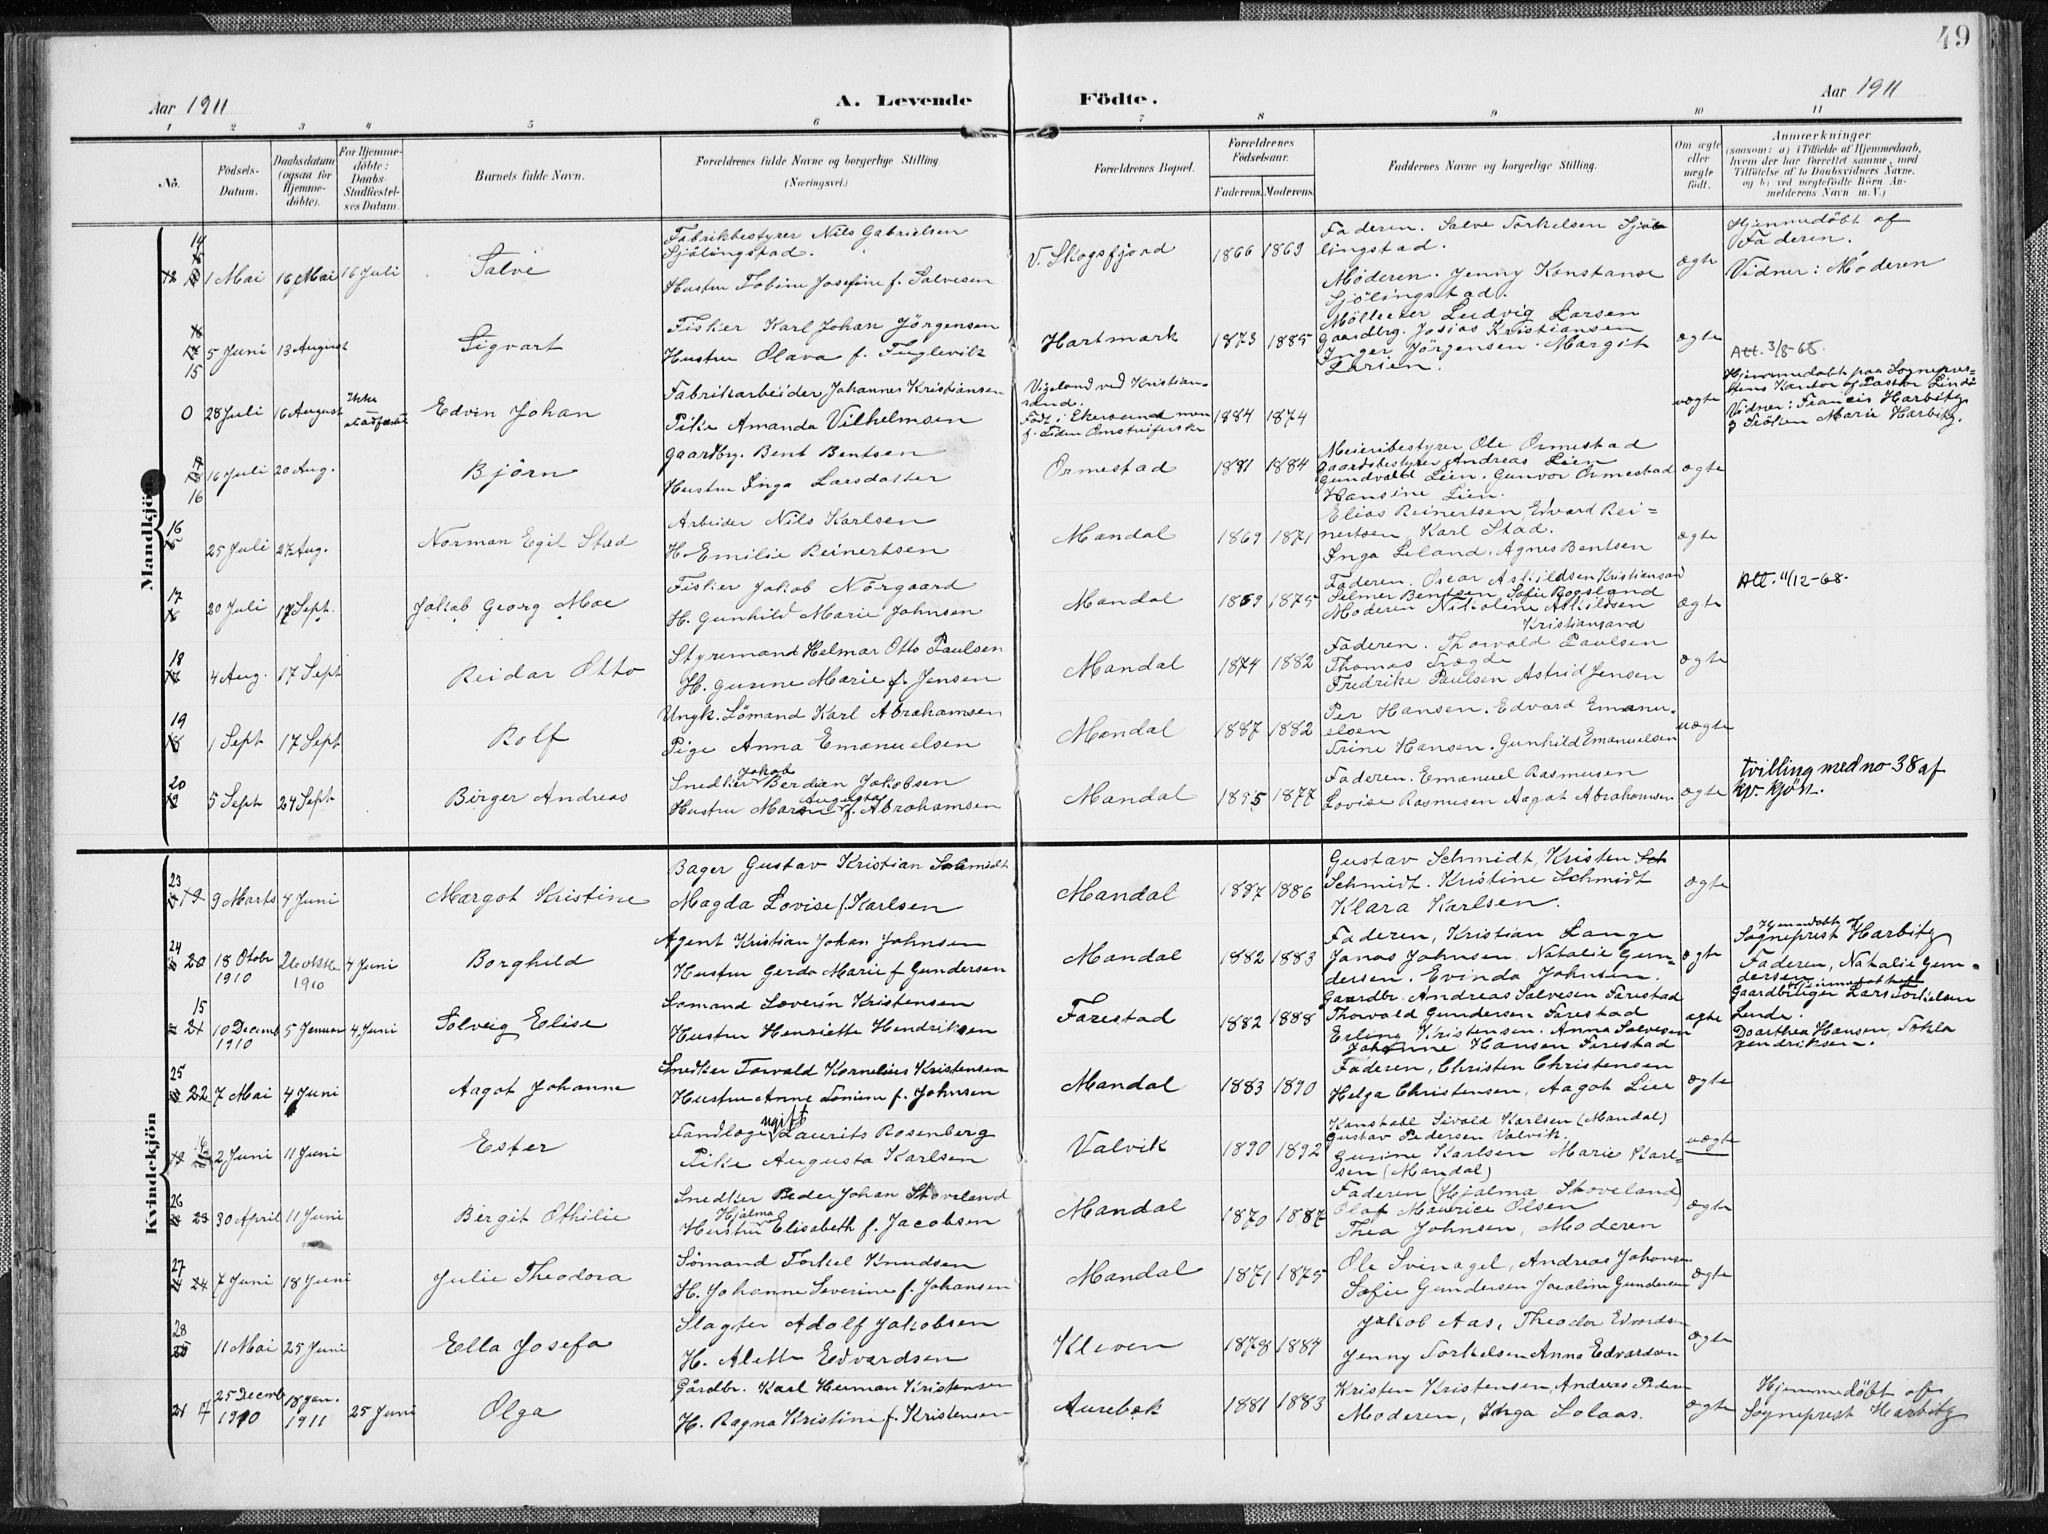 49
Aar 1911
A. Levende
Födte.
Aar 1911
1 2 3 4 5 6 7 8 9 10 11
No.
Födsels-Datum.
Daabsdatum (ogsaa for Hjemmedöbte).
For Hjemmedöbte: Daabs-Stadfæstelses Datum.
Barnets fulde Navn.
Forældrenes fulde Navne og borgerlige Stilling.
(Næringsvei.)
Forældrenes Bopæl.
Forældrenes Födselsaar.
Faderens. Moderens.
Faddernes Navne og borgerlige Stilling.
Om ægte eller uægte födt.
Anmærkninger
(saasom: a) i Tilfælde af Hjemmedaab,
hvem der har forrettet samme, med
Tilföielse af to Daabsvidners Navne,
og b) ved uægtefödte Börn An-
melderens Navn m. V.)
Mandkjön
14
1 Mai 16 Mai 16 Juli Salve
Fabrikbestyrer Nils Gabrielsen
Sjölingstad.
Hustru Tobine Josefine f. Salvesen
V. Skogsfjord 1866 1869
Faderen. Salve Torkelsen Sjö-
lingstad.
Moderen. Jenny Konstanse
Sjölingstad.
ægte
Hjemmedöbt af
Faderen.
Vidner: Moderen
15
5 Juni 13 August Sigvart
Fisker Karl Johan Jörgensen
Hustru Olava f. Fuglevik
Hartmark 1873 1885
Ludvig Larsen
Gaardbrg. Josias Kristiansen
Inger Jörgensen. Margit
Larsen.
ægte
Att. 3/8-65.
0 28 Juli 16 August Ikke Edvin Johan
Fabrikarbeider Johannes Kristiansen
Pike Amanda Vilhelmsen
Vigeland ved Kristian-
sand.
1884 1874
uægte
Hjemmedøbt paa Sognepres-
tens Kontor af Pastor Linde
Vidner: Francis Harbitz
Fröken Marie Harbitz.
16
16 Juli 20 Aug. Björn
Gaardbrg. Bent Bentsen
Hustru Inga Larsdatter
Ormestad 1881 1884
Meieribestyrer Ole Ormestad
Gaardsbestyrer Andreas Lien
Gundvald Lien. Gunvor Ormestad
Hansine Lien.
ægte
16
25 Juli 27 Aug. Norman Egil Stad
Arbeider Nils Karlsen
H. Emilie Reinertsen
Mandal 1869 1871
Elias Reinertsen, Edvard Rei-
nertsen Karl Stad.
Inga Leland. Agnes Bentsen
ægte
17
20 Juli 17 Sept. Jakob Georg Moe
Fisker Jakob Nörgaard
H. Gunhild Marie Johnsen
Mandal 1869 1875
Faderen. Oscar Askildsen Kristiansand
Selmer Bentsen, Sofie Rogsland
Moderen Nikoline Askildsen
Kristiansand
ægte
Att. 11/12-68-
18
4 Aug. 17 Sept Reidar Otto
Styrmand Helmar Otto Paulsen
H. Gusine Marie f. Jensen
Mandal 1874 1882
Faderen. Thorvald Paulsen
Thomas Trægde
Fredrike Paulsen Astrid Jensen
ægte
19
1 Sept 17 Sept Rolf
Ungk. Sömand Karl Abrahamsen
Pige Anna Emanuelsen
Mandal 1887 1882
Per Hansen. Edvard Emanu-
elsen
Trine Hansen. Gunhild Emanuelsen
uægte
20
5 Sept 24 Sept Birger Andreas
Snedker Jakob Berdian Jakobsen
Hustru Marie Augusta f. Abrahamsen
Mandal 1877
Faderen. Emanuel Rasmusen
Lovise Rasmusen Aagot Abrahamsen
ægte
tvilling med no 38 af
kv. kjön.
Kvindekjön
23
19 9 Marts 4 Juni Margot Kristine
Bager Gustav Kristian Schmidt
Magda Lovise f. Karlsen
Mandal 1887 1886
Gustav Schmidt, Kristen
Schmidt. Kristine Schmidt
Klara Karlsen.
ægte
24
20 18 Otobr 1910 26 oktbr 1910 4 Juni Borghild
Agent Kristian Johan Johnsen
Hustru Gerda Marie f Gundersen
Mandal 1882 1883
Faderen, Kristian Lange
Jonas Johnsen. Natalie Gun-
dersen. Evinda Johnsen.
ægte
Hjemmedöbt
Sogneprest Harbitz
Faderen, Natalie Gun-
dersen
15
21 10 Decemb 1910 5 Januar 4 Juni Solveig Elise
Sömand Severin Kristensen
Hustru Henriette Hendriksen
Farestad 1882 1888
Gaardbr. Andreas Salvesen Farestad
Thorvald Gundersen Farestad
Erling Kristensen. Anna Salvesen
Johanne Hansen Farestad
ægte
Gaardbruger Lars Torkelsen
Lunde.
Dorthea Hansen, Tekla
Hendriksen.
25
22 7 Mai 4 Juni Aagot Johanne
Snedker Torvald Kornelius Kristensen
Hustru Anne Tomine f. Johnsen
Mandal 1883 1890
Faderen, Christen Christensen
Helga Christensen, Aagot Lie
ægte
16
2 Juni 11 Juni Ester
ugift Laurits Rosenberg
Pike Augusta Karlsen
Valvik 1890 1892
Konstabl Sivald Karlsen (Mandal)
Gustav Pedersen Valvik.
Gusine Karlsen Marie Karl-
sen (Mandal)
uægte
26
23 30 April 11 Juni Birgit Othilie
Snedker Peder Johan Stoveland
Hustru Hjalma Elisabeth f. Jacobsen
Mandal 1870 1887
Faderen (Hjalma Stoveland)
Olaf Maurice Olsen
Thea Johnsen, Moderen
ægte
27
24 7 Juni 18 Juni Julie Theodora
Sömand Torkel Knudsen
H. Johanne Severine f. Johansen
Mandal 1871 1875
Ole Svinagel, Andreas Johansen
Sofie Gundersen Jocoline Gundersen
ægte
28
11 Mai 25 Juni Ella Josefa
Slagter Adolf Jakobsen
H. Alette Edvardsen
Kleven 1878 1884
Jakob Aas, Theodor Edvardsen
Jenny Torkelsen Anna Edvardsen
ægte
17 25 Decmb 1910 18 Jan. 1911 25 Juni Olga
Gårdbr. Karl Herman Kristensen
H. Ragna Kristine f. Kristensen
Aurebæk 1881 1883
Kristen Kristensen, Andreas Pedersen
Moderen, Inga Solaas.
ægte
Hjemmedöbt af
Sogneprest Harbitz